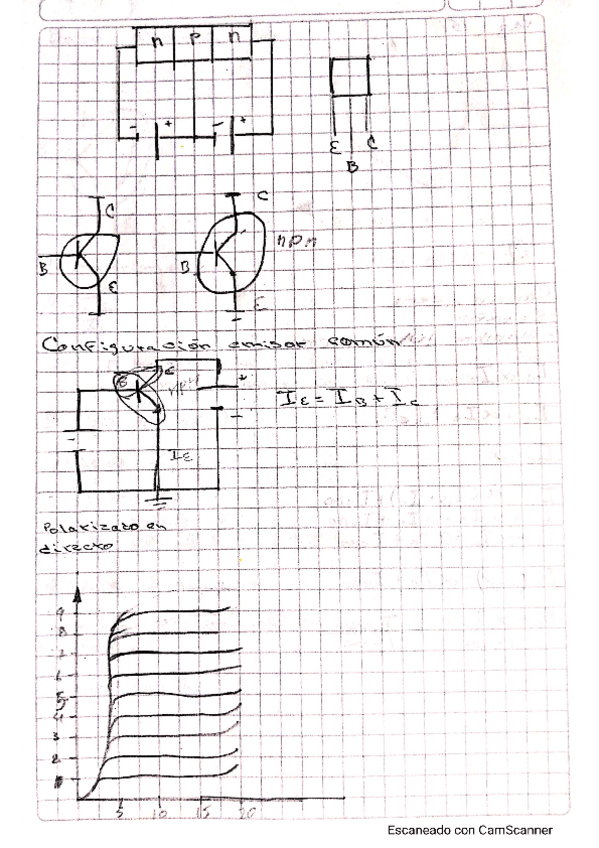 n p n
- + - +
E C
B
C C
B B npn
E E
Configuración emisor común
C
npn
+
IE = IB + IC
-
-
IE
Polarizado en
directo
9
8
7
6
5
4
3
2
1
5 10 15 20
Escaneado con CamScanner